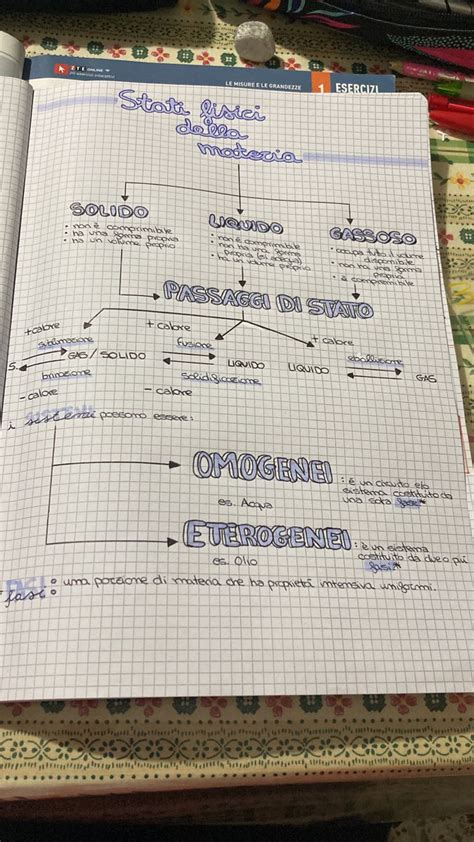 ZTE ONLINE
LE MISURE E LE GRANDEZZE 1 ESERCIZI
Stati fisici
della
materia
SOLIDO
• non è comprimibile
• ha una forma propria
• ha un volume proprio
LIQUIDO
• non è comprimibile
• non ha una forma
propria
• ha un volume proprio
GASSOSO
• occupa tutto il volume
disponibile
• non ha una forma
propria
• è comprimibile
PASSAGGI DI STATO
+ calore + calore + calore
sublimazione fusione ebollizione
S. GAS/SOLIDO LIQUIDO LIQUIDO GAS
brinazione solidificazione
- calore - calore
i sistemi possono essere:
OMOGENEI : è un
sistema costituito da
una sola fase*
es. Acqua
ETEROGENEI : è un sistema
costituito da due o più
fasi*
es. Olio
FASI
fasi : una porzione di materia che ha proprietà intensiva uniformi.